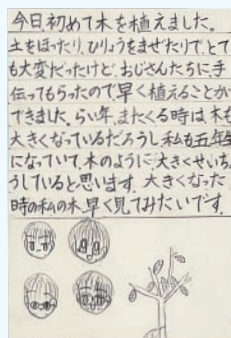 今日初めて木を植えました。
土をほったり、ひりょうをまぜたりで、とて
も大変だったけど、おじさんたちに、手
伝ってもらったので早く植えることが
できました。らい年、またくる時は木も
大きくなっているだろうし私も五年生
になっていて、木のように大きくせいちょ
うしていると思います。大きくなった
時の私の木、早く見てみたいです。